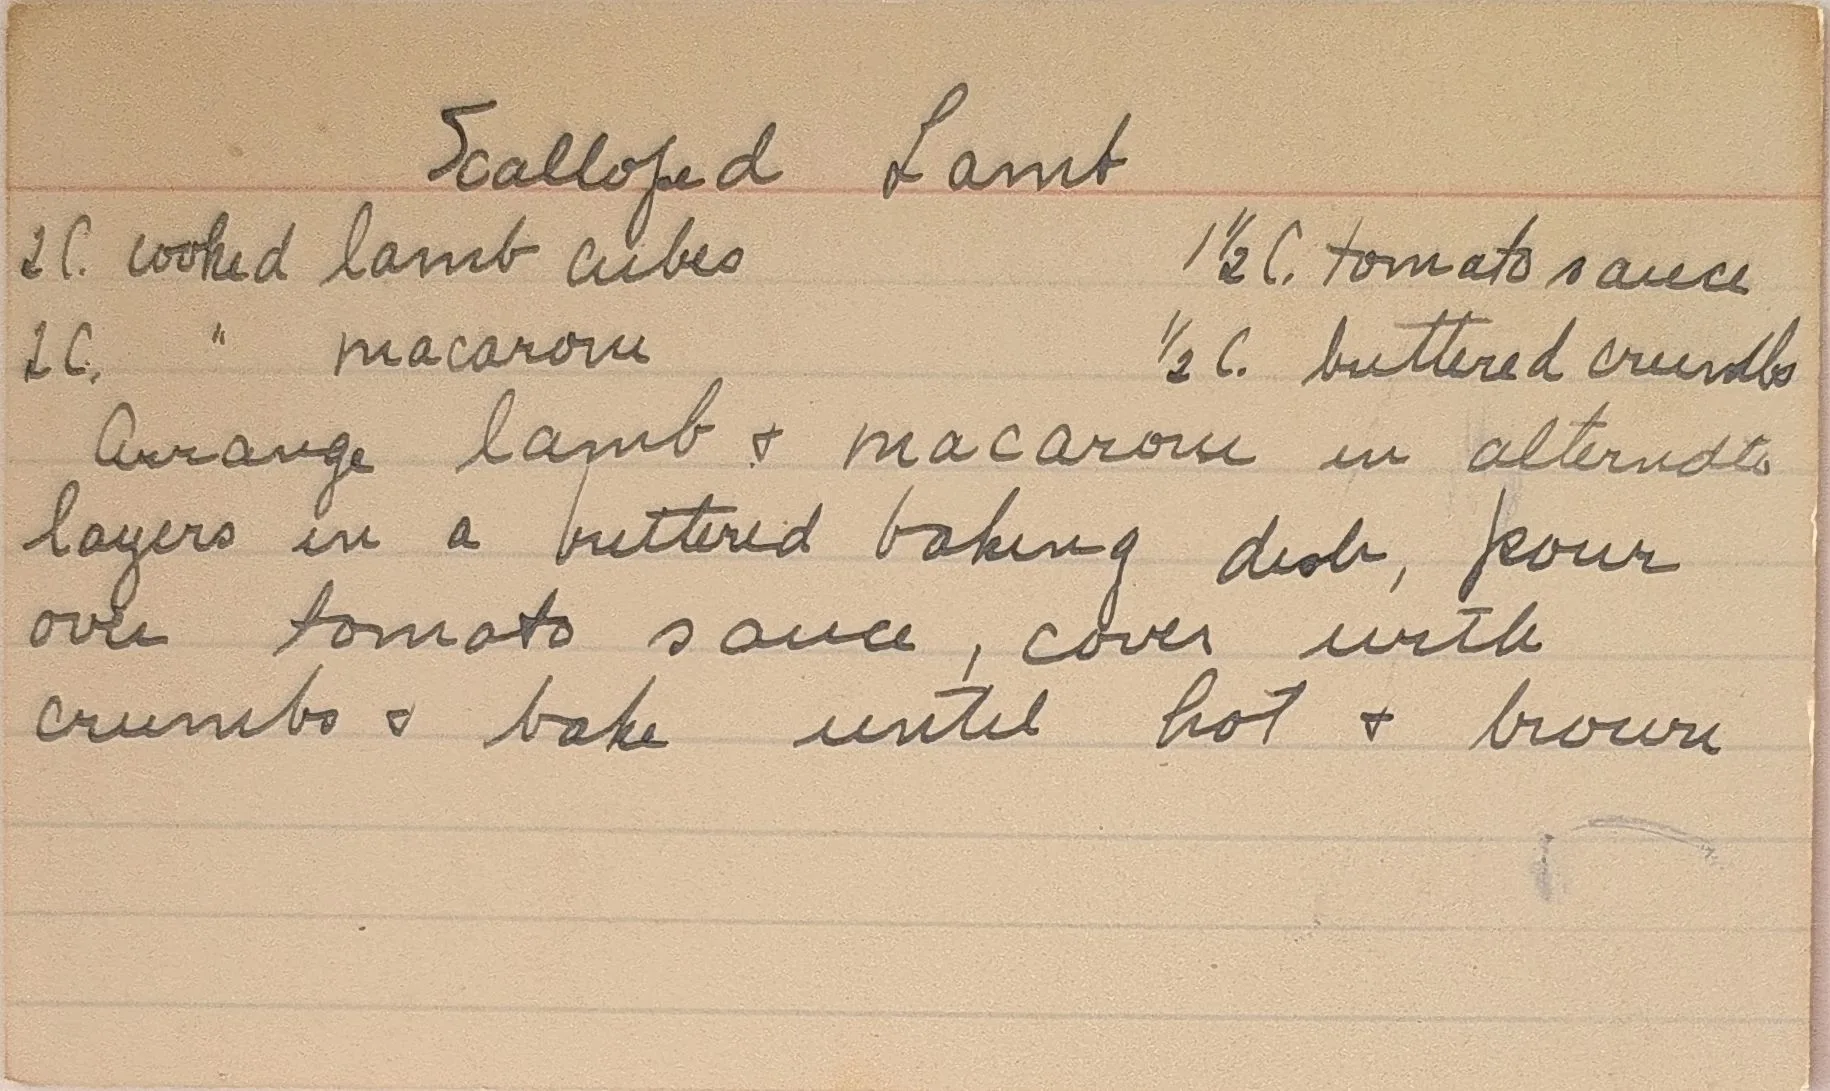 Scalloped Lamb
2 C. cooked lamb cubes 1 1/2 C. tomato sauce
2 C. " macaroni 1/2 C. buttered crumbs
Arrange lamb & macaroni in alternate
layers in a buttered baking dish, pour
over tomato sauce, cover with
crumbs & bake until hot & brown